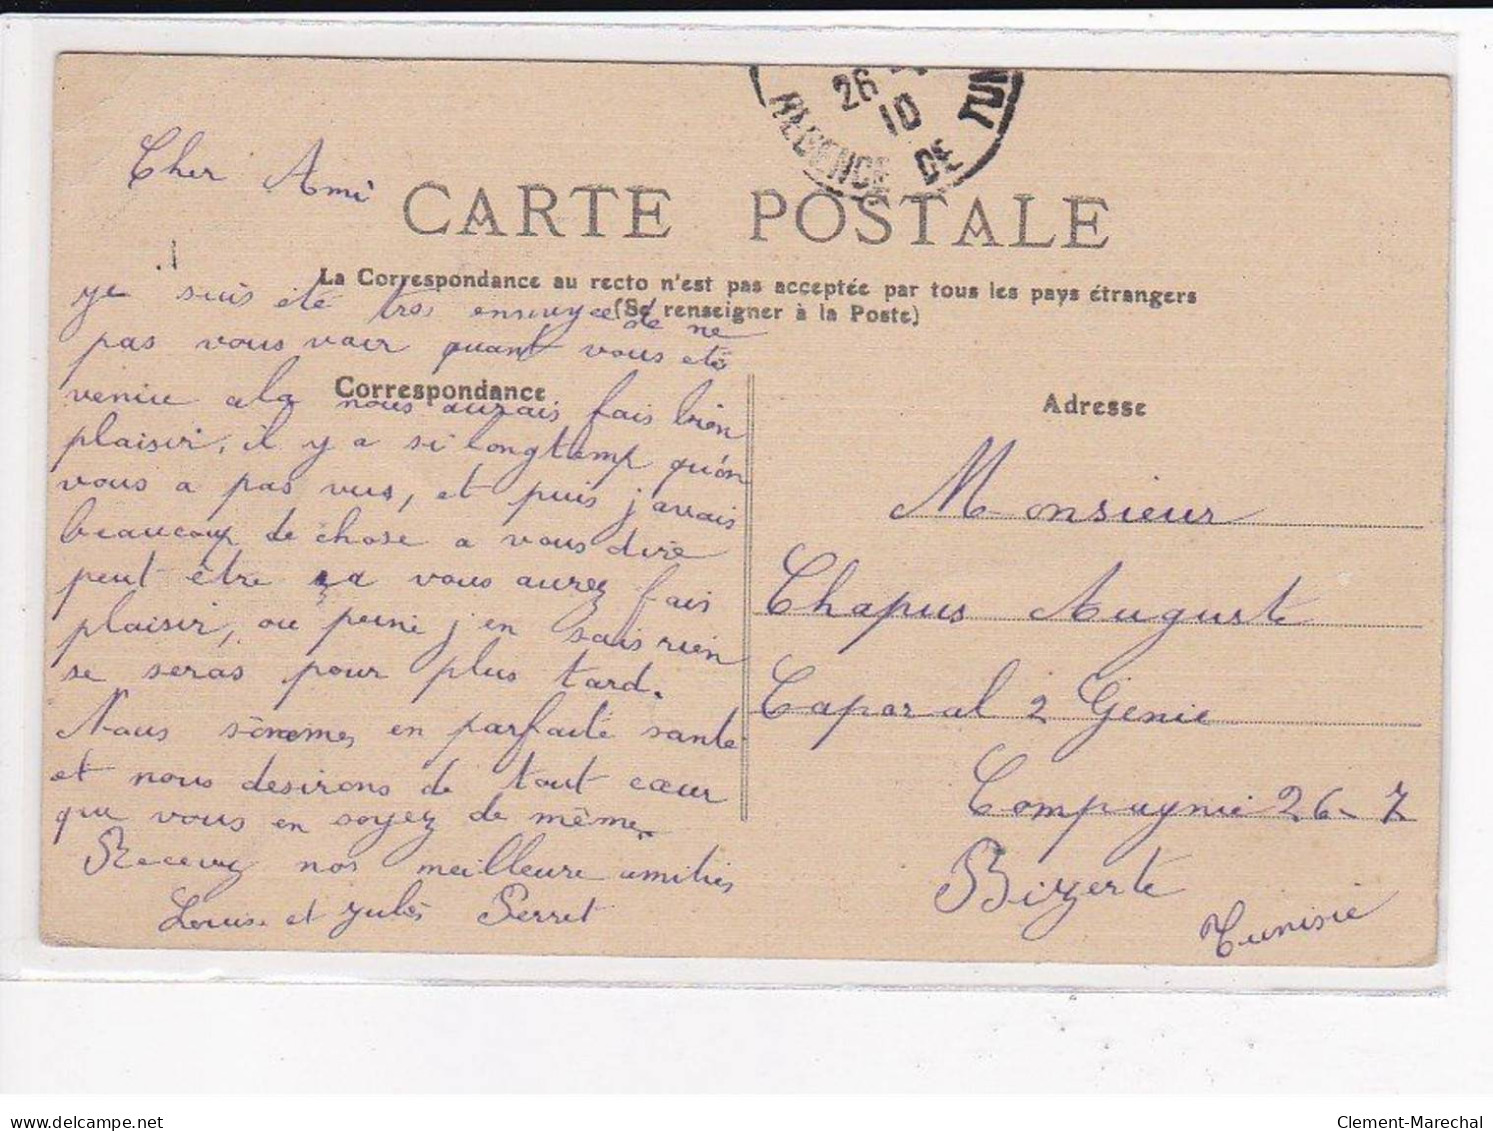 26
10
REGENCE DE TUN
Cher Ami
CARTE POSTALE
La Correspondance au recto n'est pas acceptée par tous les pays étrangers
(Se renseigner à la Poste)
Correspondance
Adresse
je suis été tres ennuyee de ne
pas vous voir quant vous eté
venue ala nous aurais fais bien
plaisir, il y a si longtemp qu'on
vous a pas vus, et puis j'avrais
beaucoup de chose a vous dire
peut être sa vous aurez fais
plaisir, ou peine j'en sais rien
se seras pour plus tard.
Nous sommes en parfaite santé
et nous desirons de tout cœur
que vous en soyez de même
Recevez nos meilleure amitiés
Louise et Jules Perret
Monsieur
Chapus August
Caporal 2 Genie
Compagnie 26-7
Bizerte
Tunisie
delcampe.net
Clement-Marechal